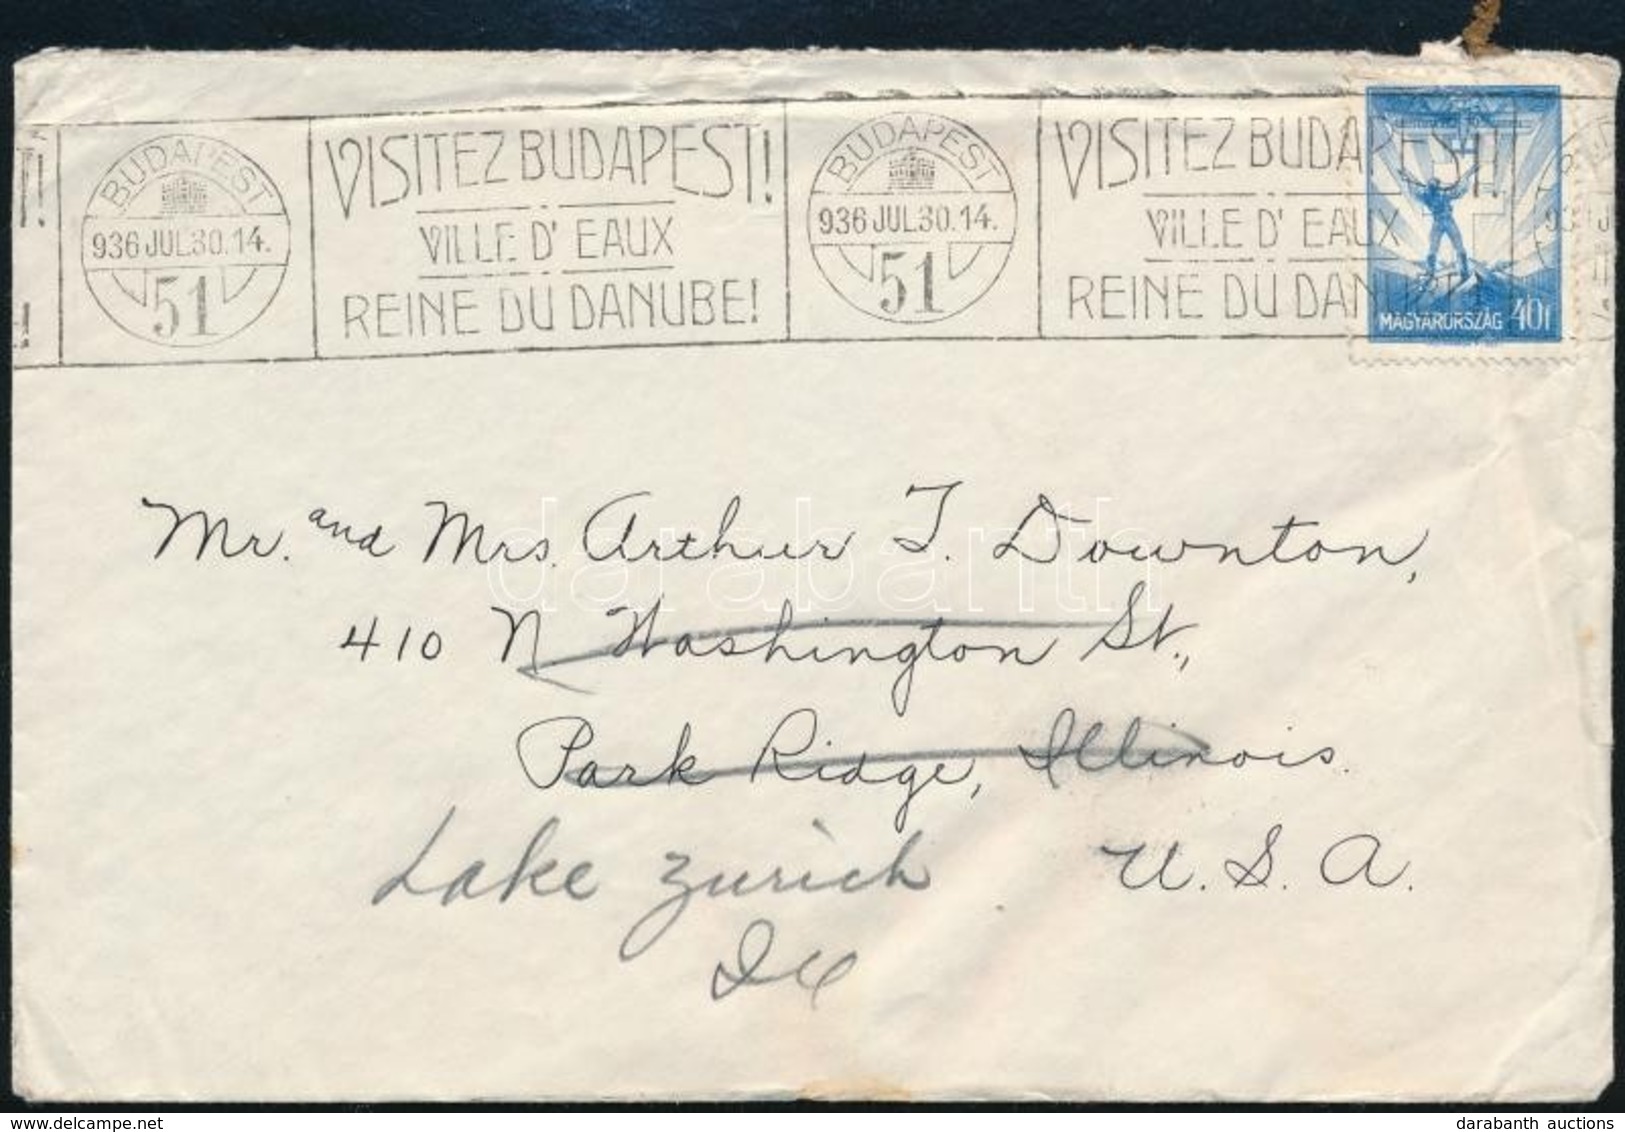 BUDAPEST
936 JUL.30.14.
51
VISITEZ BUDAPEST!
VILLE D' EAUX
REINE DU DANUBE!
BUDAPEST
936 JUL.30.14.
51
VISITEZ BUDAPEST!
VILLE D' EAUX
REINE DU DAN
MAGYARORSZÁG 40f
Mr. and Mrs. Arthur T. Downton,
410 N Washington St.,
Park Ridge, Illinois.
U. S. A.
Lake Zurich
Ill
darabanth
www.delcampe.net
darabanth auctions